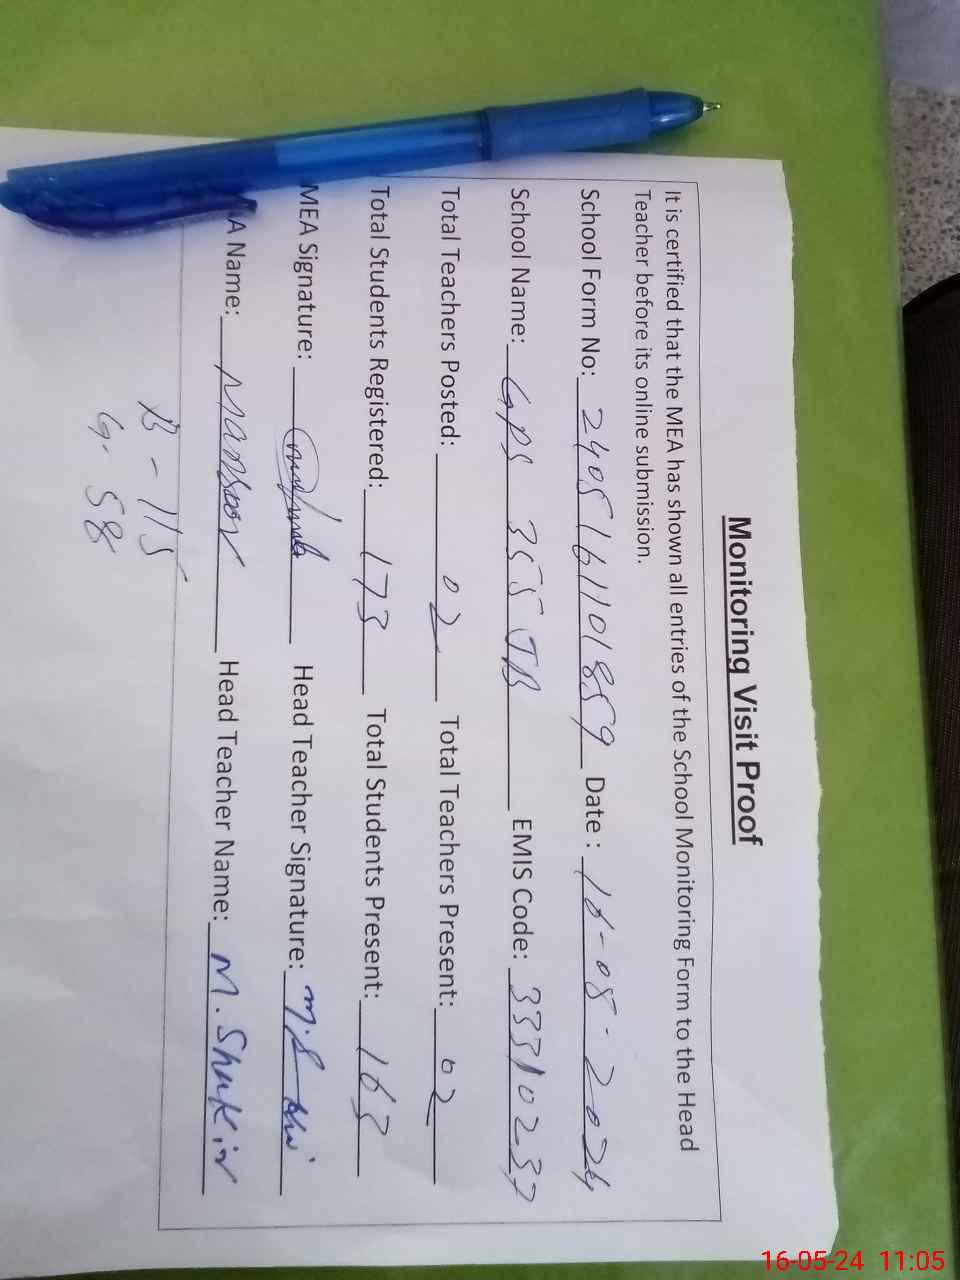 Monitoring Visit Proof
It is certified that the MEA has shown all entries of the School Monitoring Form to the Head
Teacher before its online submission.
School Form No: 2405161101859 Date : 16-05-2024
School Name: GPS 355 JB EMIS Code: 33310237
Total Teachers Posted: 02 Total Teachers Present: 02
Total Students Registered: 173 Total Students Present: 163
MEA Signature: Head Teacher Signature:
A Name: Mansoor Head Teacher Name: M. Shakir
B - 115
G. 58
16-05-24 11:05